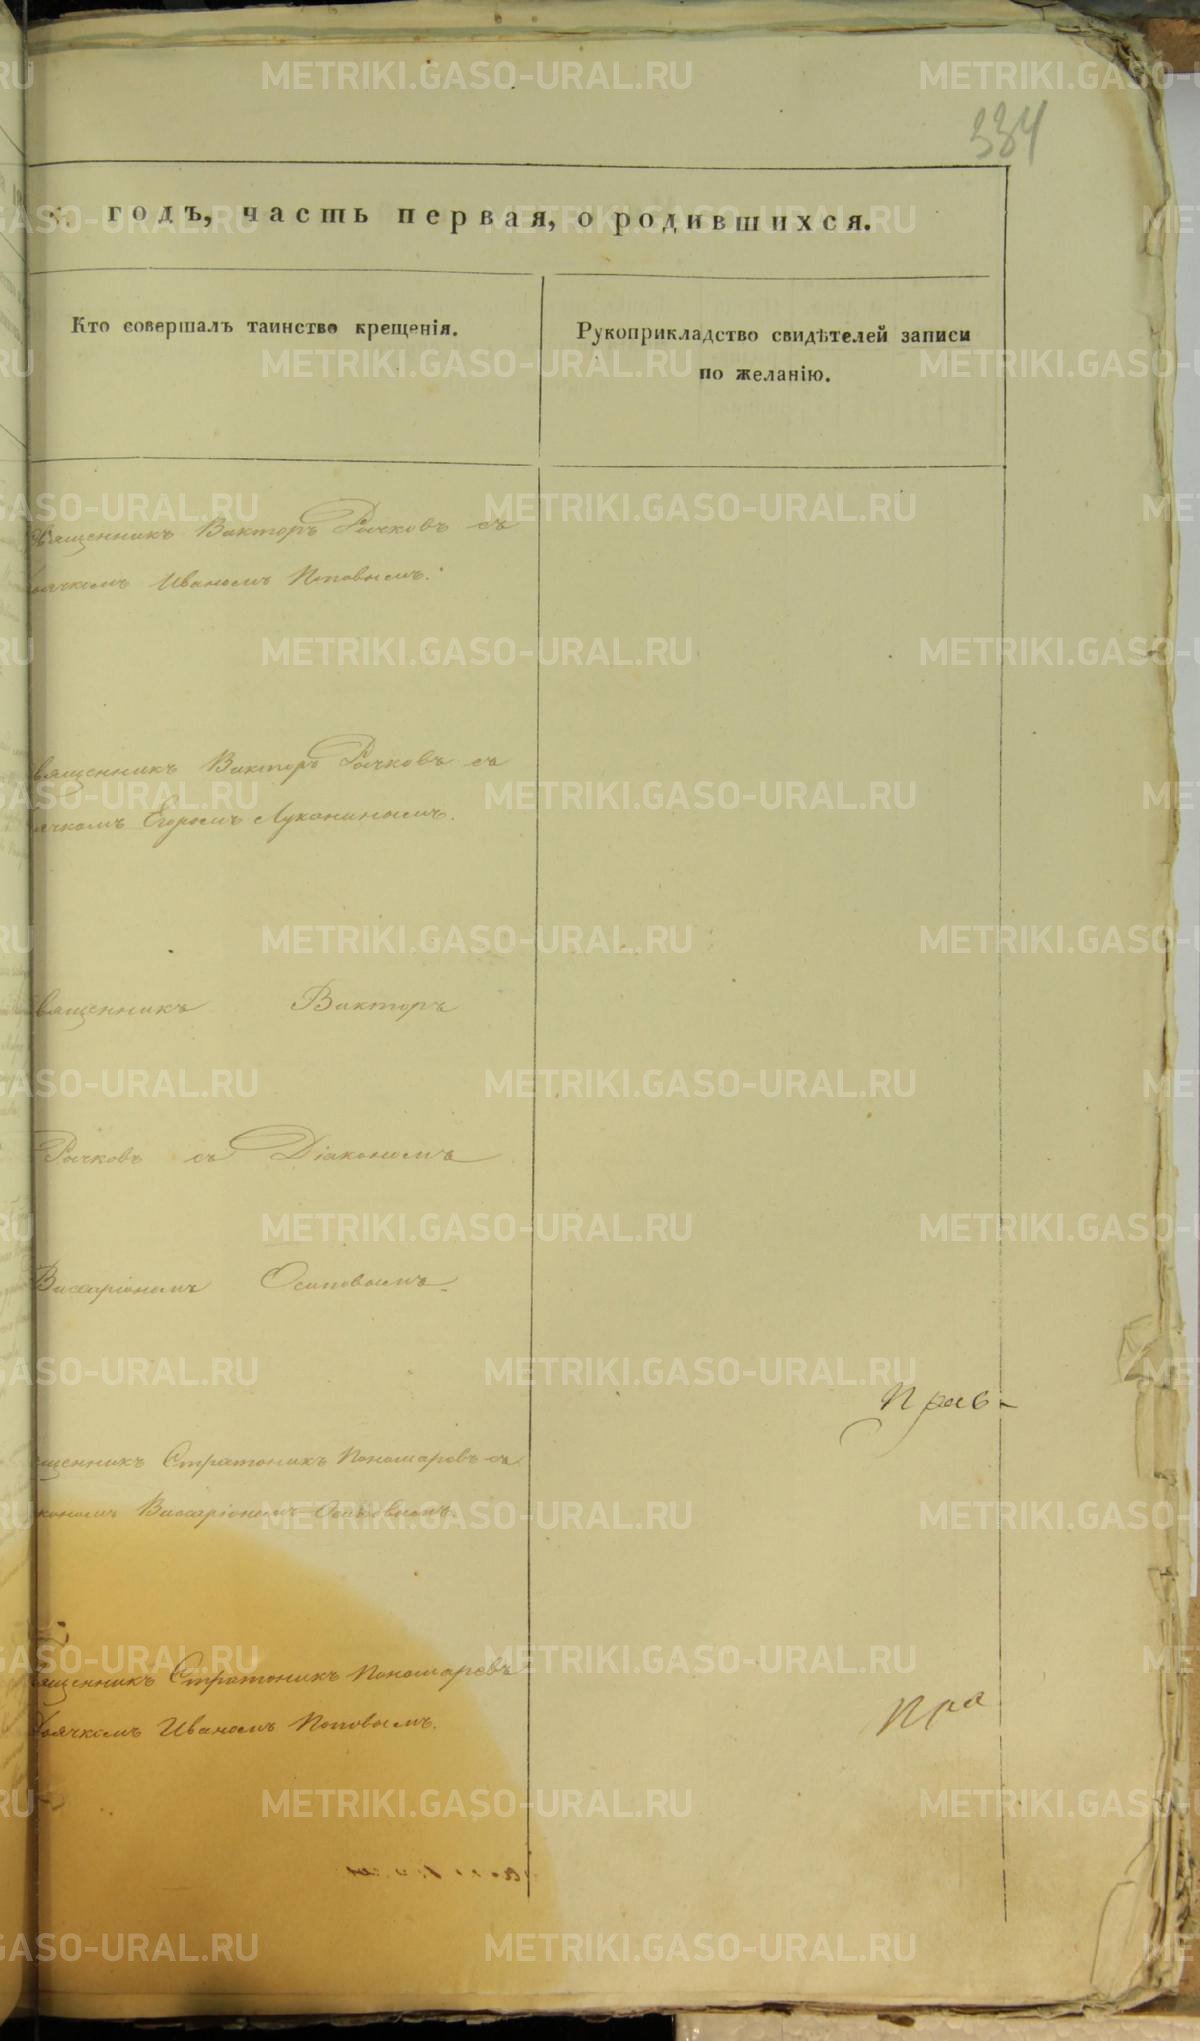 334
годъ, часть первая, о родившихся.
Кто совершалъ таинство крещенія.
Рукоприкладство свидѣтелей записи
по желанію.
вященникъ Викторъ Рычковъ съ
ячкомъ Иваномъ Поповымъ.
вященникъ Викторъ Рычковъ съ
ячкомъ Егоромъ Луканинымъ.
вященникъ Викторъ
Рычковъ съ Діакономъ
Виссаріономъ Осиповымъ.
Прав-
щенникъ Стратоникъ Пономаревъ съ
кономъ Виссаріономъ Осиповымъ.
ященникъ Стратоникъ Пономаревъ
Дьячкомъ Иваномъ Поповымъ.
Пра
METRIKI.GASO-URAL.RU